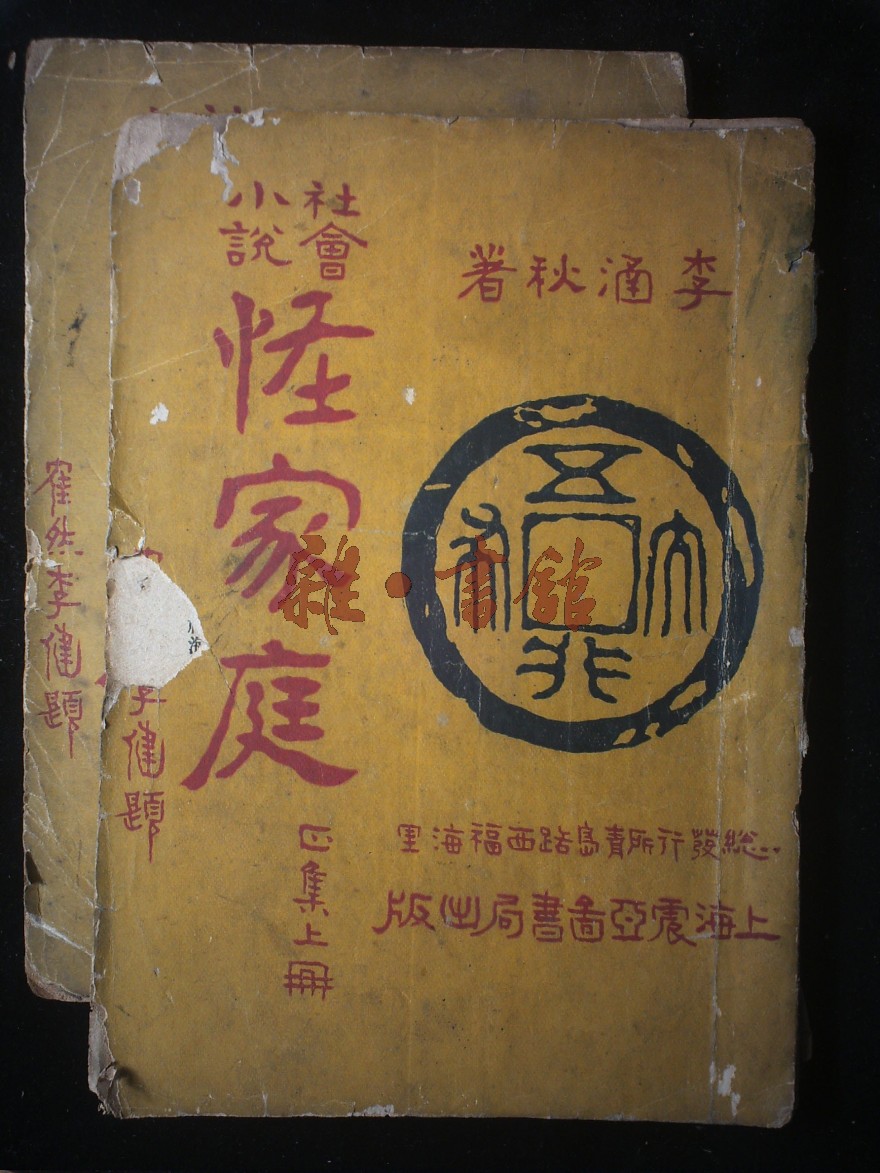 李涵秋著
五行大布
總發行所青島路西福海里
上海震亞圖書局出版
社會
小說
恠家庭
正集上冊
李健題
隺然李健題
雜·書館